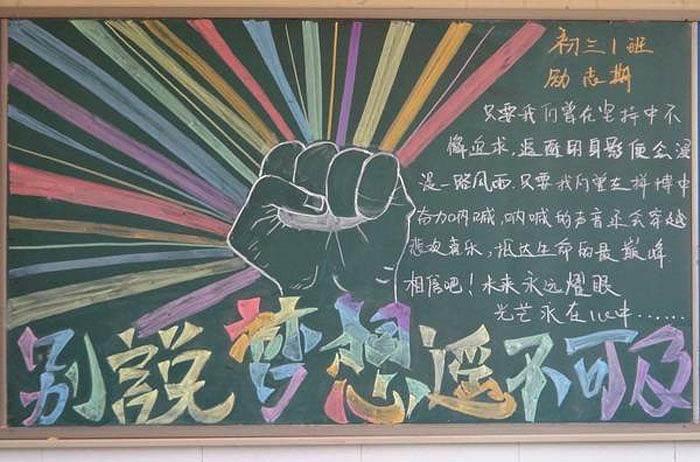 初三1班
励志期
只要我们曾在坚持中不
懈追求,身影便会漫
漫一路风雨.只要我们曾在拼搏中
奋力呐喊,呐喊的声音还会穿越
悲欢喜乐,抵达生命的最巅峰
相信吧!未来永远耀眼
光芒永在心中……
别說梦想遥不可及